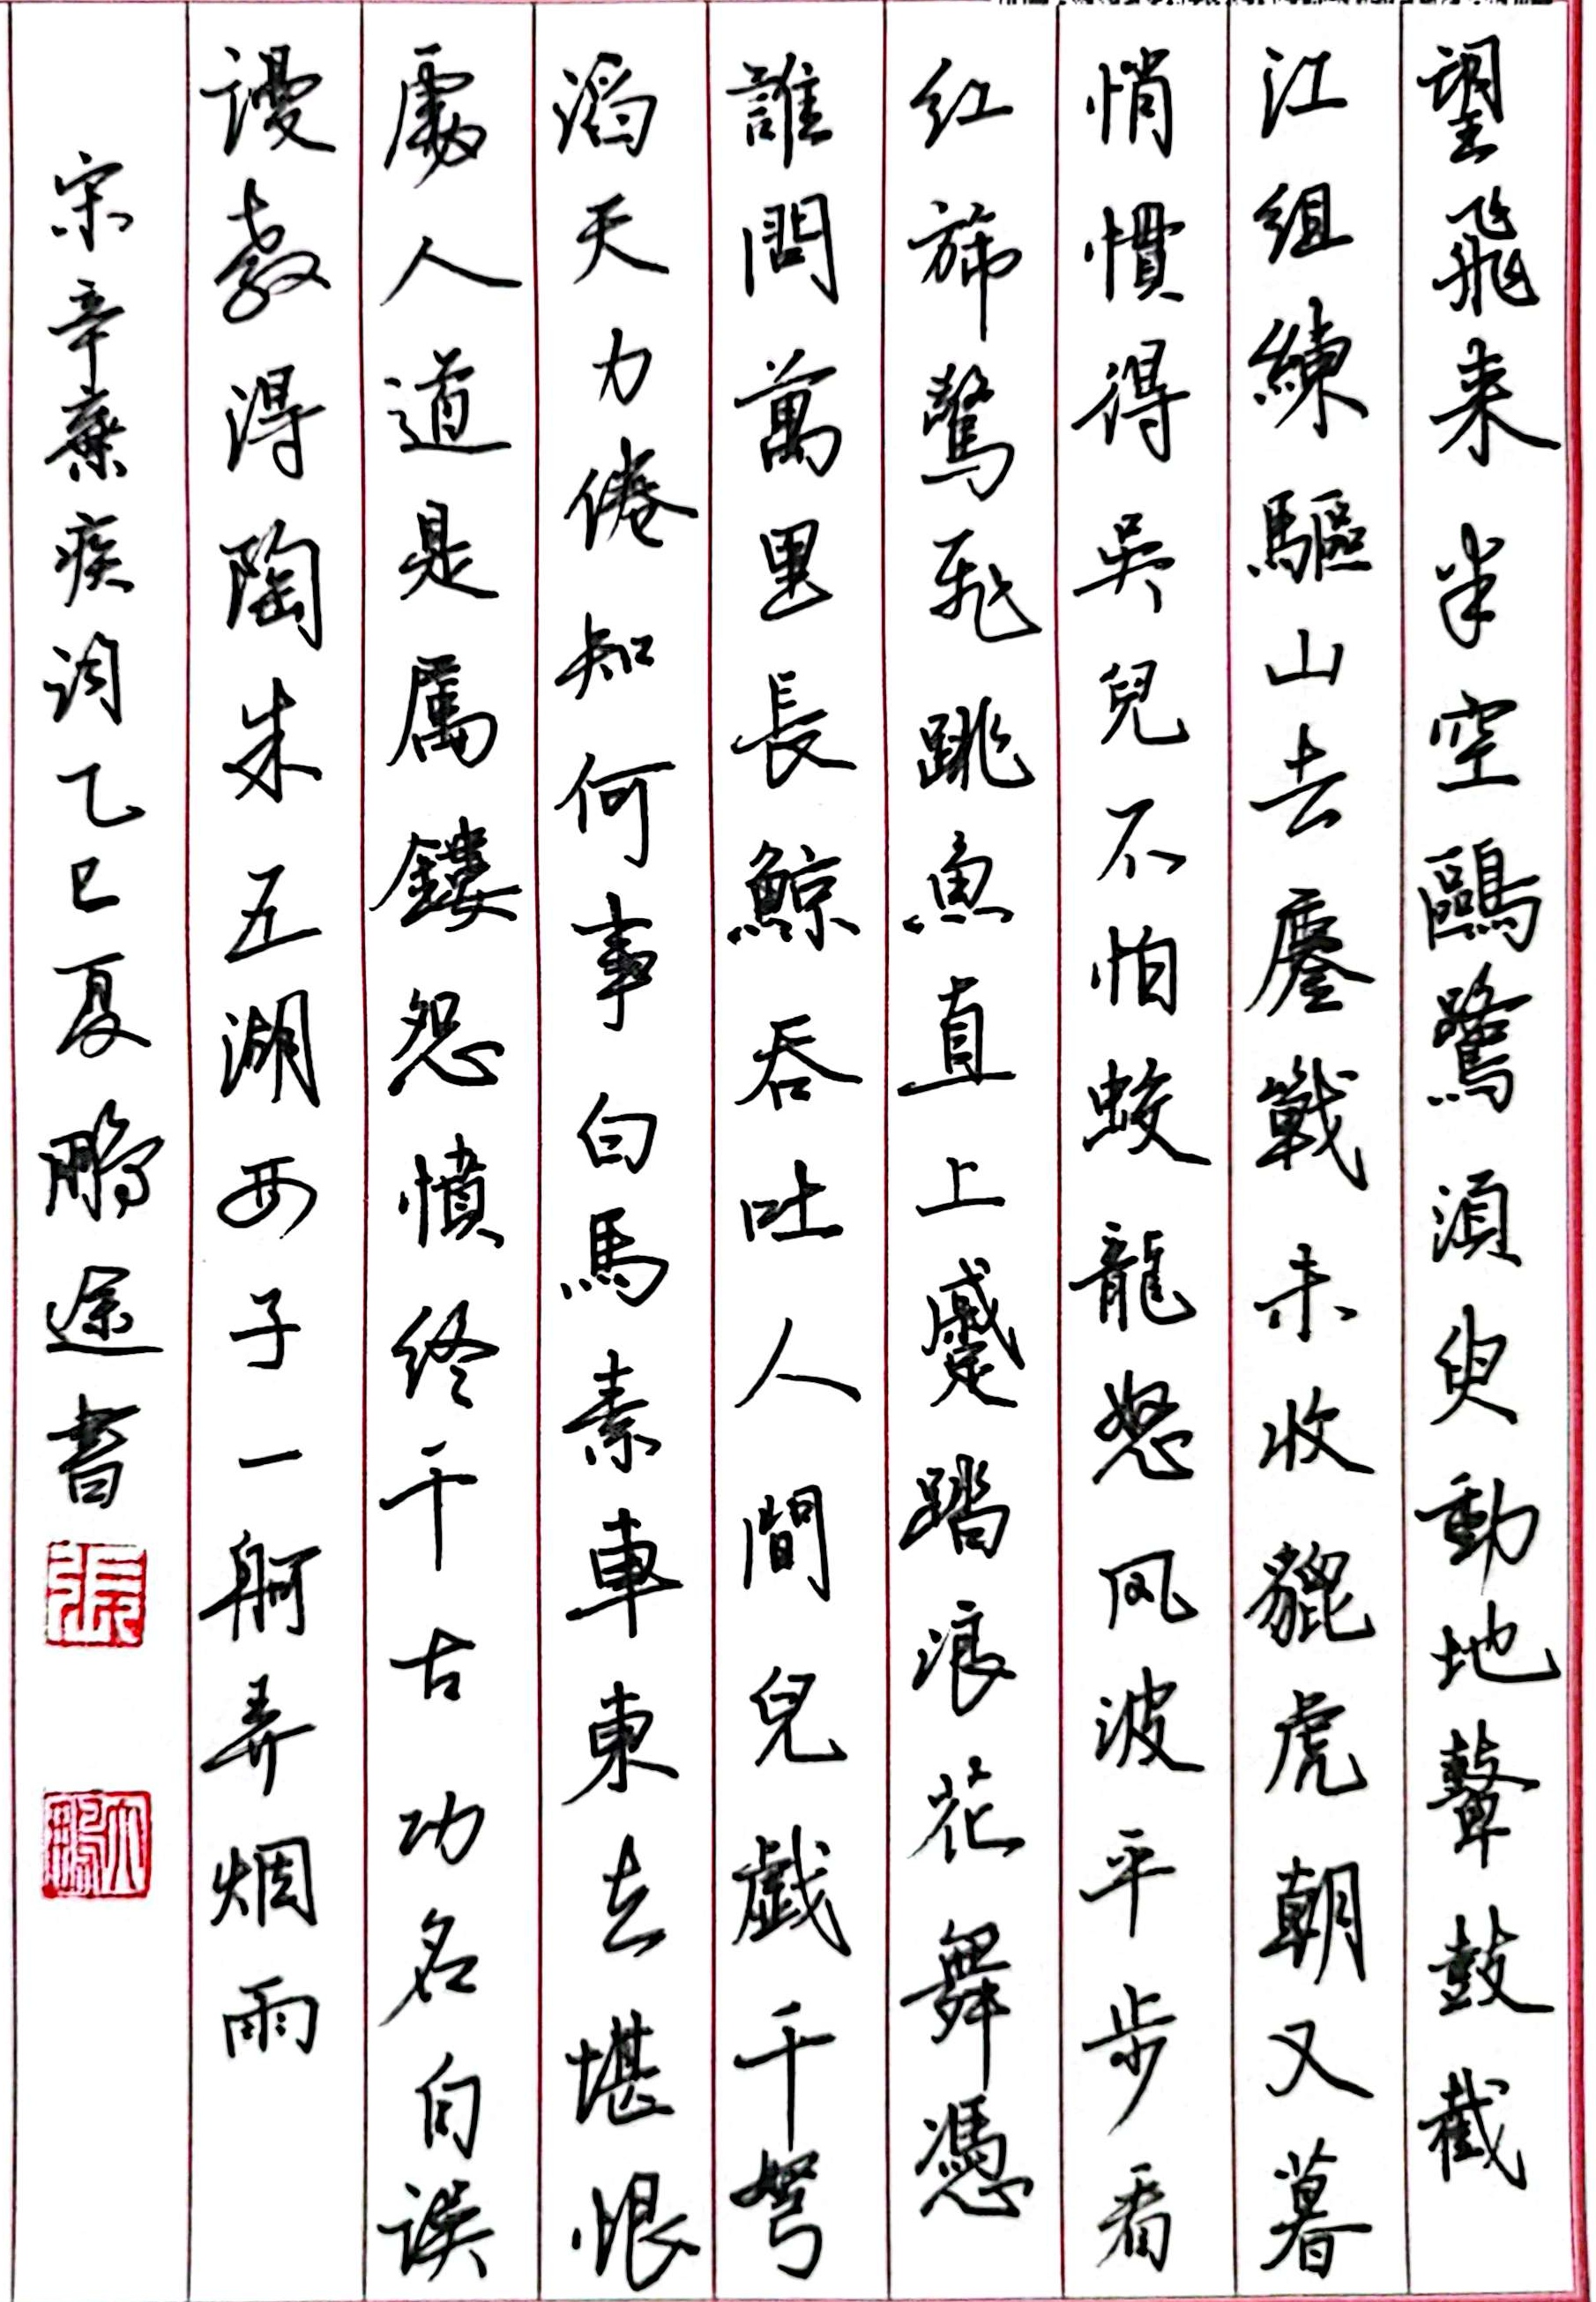 望飛来半空鷗鷺須臾動地鼙鼓截
江組練驅山去鏖戰未收貔虎朝又暮
悄慣得吳兒不怕蛟龍怒风波平步看
红旆驚飛跳魚直上蹙踏浪花舞憑
誰問萬里長鯨吞吐人間兒戲千弩
滔天力倦知何事白馬素車東去堪恨
處人道是屬鏤怨憤终千古功名自误
謾教得陶朱五湖西子一舸弄烟雨
宋辛棄疾词乙巳夏鵬途書
張